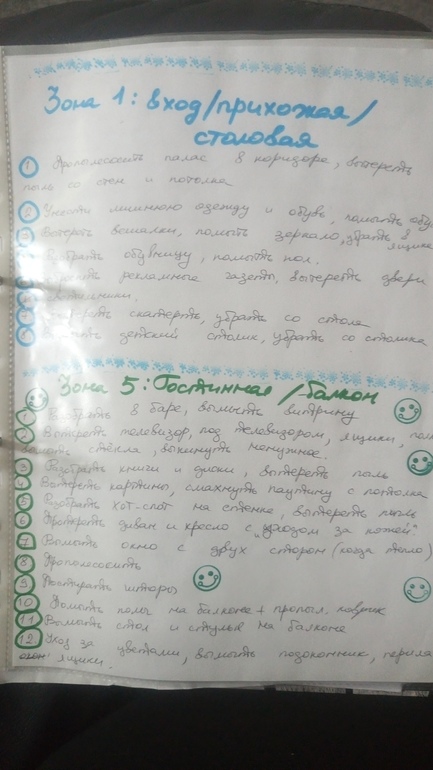 Зона 1: вход/прихожая/
столовая
1 Пропылесосить палас в коридоре, вытереть
пыль со стен и потолка
2 Унести лишнюю одежду и обувь, помыть обувь
Вытереть вешалки, помыть зеркало, убрать в
ящике
обувницу, помыть пол.
рекламные газеты, вытереть двери
скатерть, убрать со стола
детский столик, убрать со столика
Зона 5: Гостинная/балкон
1 Разобрать в баре, вымыть витрину
2 Вытереть телевизор, под телевизором, ящики,
стёкла, выкинуть ненужное.
3 Разобрать книги и диски, вытереть пыль
4 Вытереть картины, смахнуть паутину с потолка
5 Разобрать хот-спот на стенке, вытереть пыль
6 Протереть диван и кресло с "уходом за кожей"
7 Вымыть окно с двух сторон (когда тепло)
8 Пропылесосить
9 Постирать шторы
10 Помыть полы на балконе + пропыл. коврик
11 Вымыть стол и стулья на балконе
12 Уход за цветами, вымыть подоконник, перила
ящики.